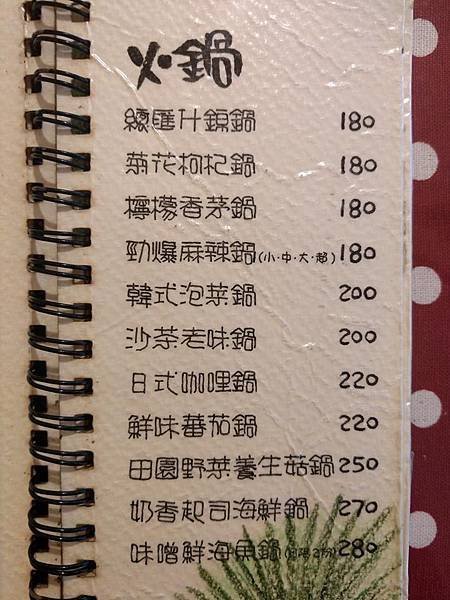 火鍋
總匯什錦鍋 180
菊花枸杞鍋 180
檸檬香茅鍋 180
勁爆麻辣鍋(小·中·大·超) 180
韓式泡菜鍋 200
沙茶老味鍋 200
日式咖哩鍋 220
鮮味蕃茄鍋 220
田園野菜養生菇鍋 250
奶香起司海鮮鍋 270
味噌鮮海魚鍋 280